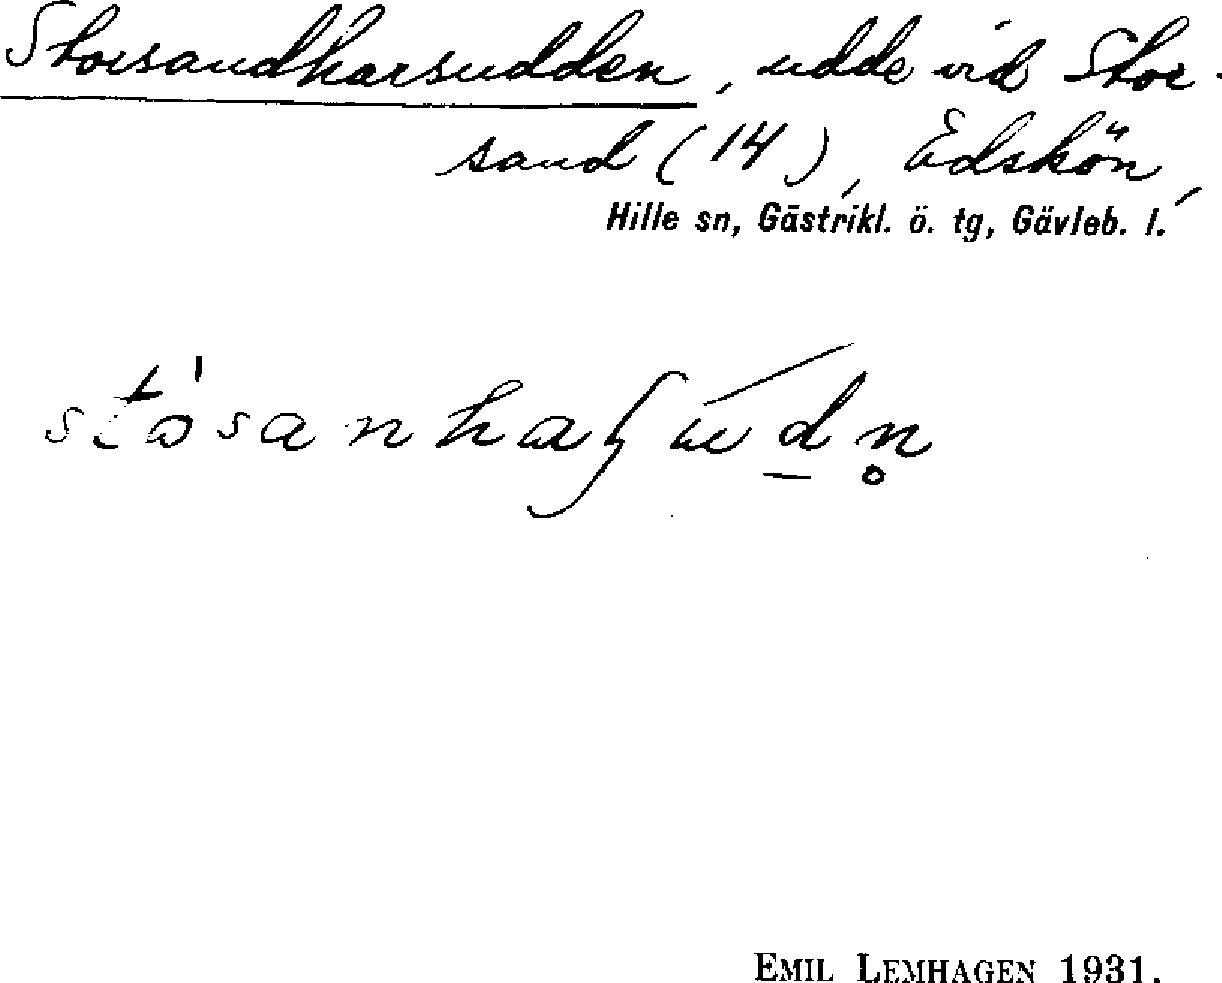 Storsandharsudden, udde vid Stor-
sand (14), Edskön,
Hille sn, Gästrikl. ö. tg, Gävleb. l.
EMIL LEMHAGEN 1931.